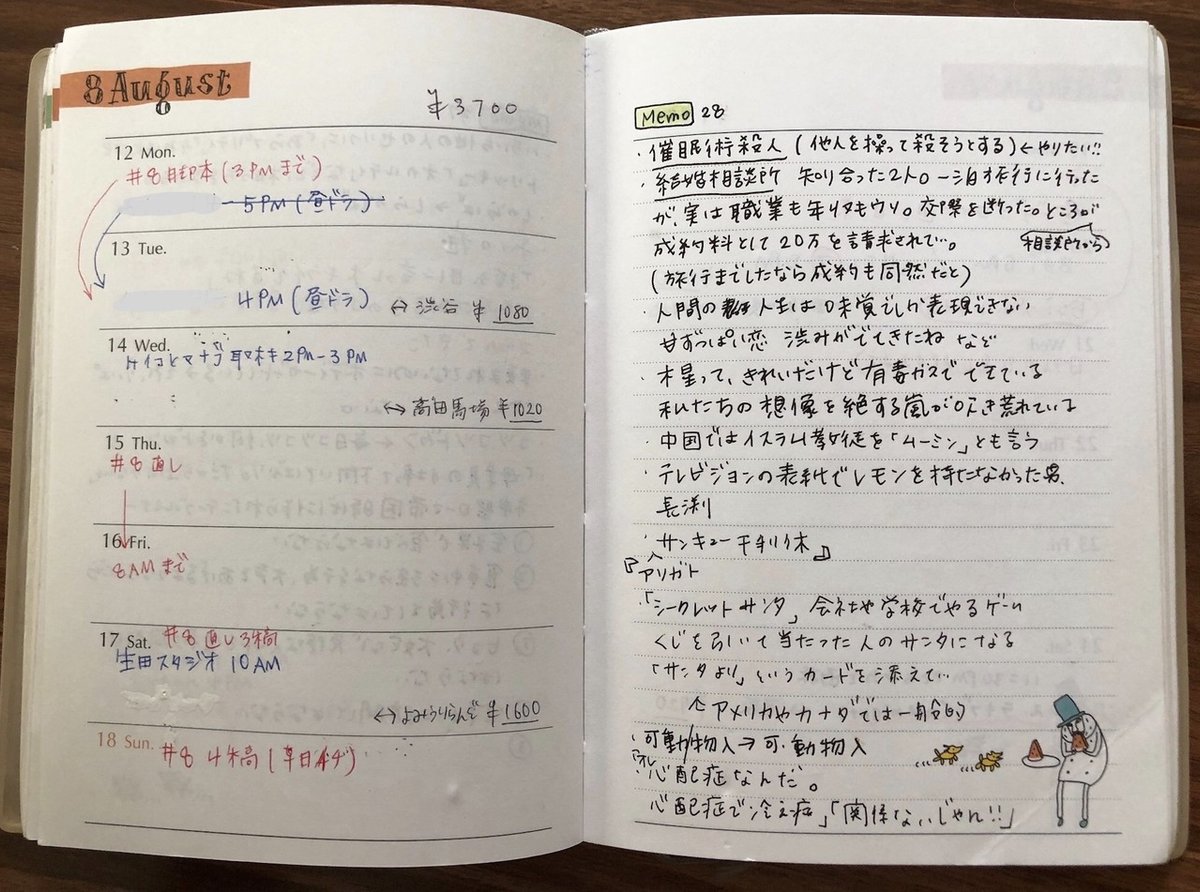 8 August
¥3700
12 Mon.
#8脚本(3PMまで)
5PM(昼ドラ)
13 Tue.
4PM(昼ドラ)
↔渋谷 ¥1080
14 Wed.
ケイコとマナブ 取材 2PM-3PM
↔高田馬場 ¥1020
15 Thu.
#8 直し
16 Fri.
8AMまで
17 Sat. #8 直し 3稿
生田スタジオ 10AM
↔よみうりらんど ¥1600
18 Sun. #8 4稿(
Memo 28
・催眠術殺人(他人を操って殺そうとする)←やりたい!!
・結婚相談所 知り合った2人。一泊旅行に行った
が、実は職業も年収もウソ。交際を断った。ところが
相談所から
成約料として20万を請求されて…。
(旅行までしたなら成約も同然だと)
・人間の人生は味覚でしか表現できない
甘ずっぱい恋 渋みがでてきたね など
・木星って、きれいだけど有毒ガスでできている
私たちの想像を絶する嵐が吹き荒れている
・中国ではイスラム教徒を「ムーミン」とも言う
・テレビジョンの表紙でレモンを持たなかった男、
長渕
・サンキュー千利休』
『アリガト
「シークレットサンタ」会社や学校でやるゲーム
くじを引いて当たった人のサンタになる
「サンタより」というカードを添えて…
↑アメリカやカナダでは一般的
・可動/物入→可・動物入
「オレ
・心配症なんだ。
心配症で冷え症」「関係ないじゃん!!」